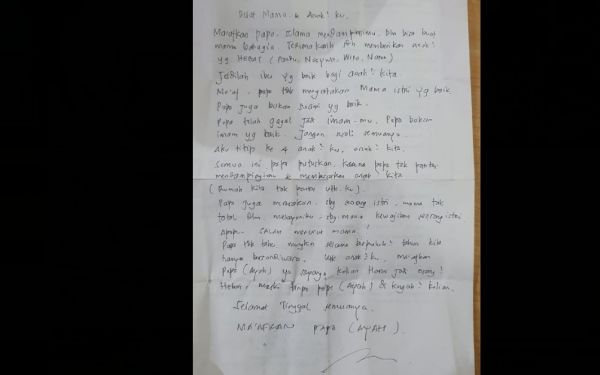 Buat Mama & Anak² ku.
Maafkan Papa. Selama mendampingimu. Blm bisa buat
mama bahagia. Terimakasih tlh memberikan anak²
yg HEBAT (
Jadilah ibu yg baik bagi anak² kita.
Maaf. papa tdk mengatakan Mama istri yg baik
Papa juga bukan suami yg baik.
Papa telah gagal jdi imam-mu. Papa bukan
imam yg baik. Jangan semuanya.
Aku titip ke 4 anak² ku, anak² kita.
Semua ini papa putuskan, karena papa tak pantas
mendampingimu & membesarkan anak kita
(Rumah kita tak pantas utk ku)
Papa juga merasakan, sbg seorang istri, mama tak
total dlm melayaniku sbgimana kewajiban seorang istri
apapun SALAH menurut mama!
Papa tdk tahu mungkin selama berpuluh² tahun kita
hanya bersandiwara. Utk anak² ku, maafkan
Papa (Ayah) yg sayang. kalian Harus jdi orang²
Hebat. meski tanpa papa (Ayah) &
Selamat Tinggal semuanya.
MAAFKAN PAPA (AYAH).